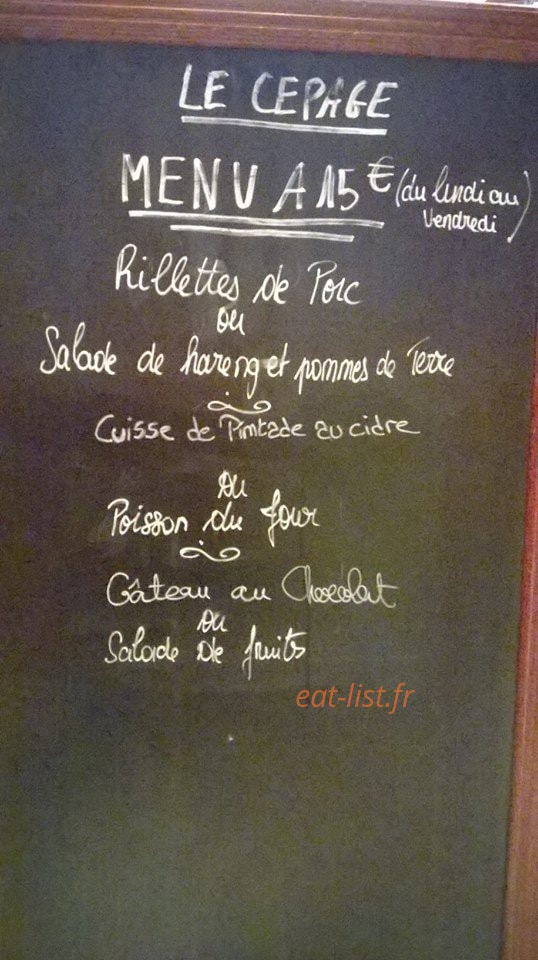 LE CEPAGE
MENU A 15 € (du lundi au
Vendredi)
Rillettes de Porc
ou
Salade de hareng et pommes de Terre
Cuisse de Pintade au cidre
ou
Poisson du jour
Gâteau au Chocolat
ou
Salade de fruits
eat-list.fr